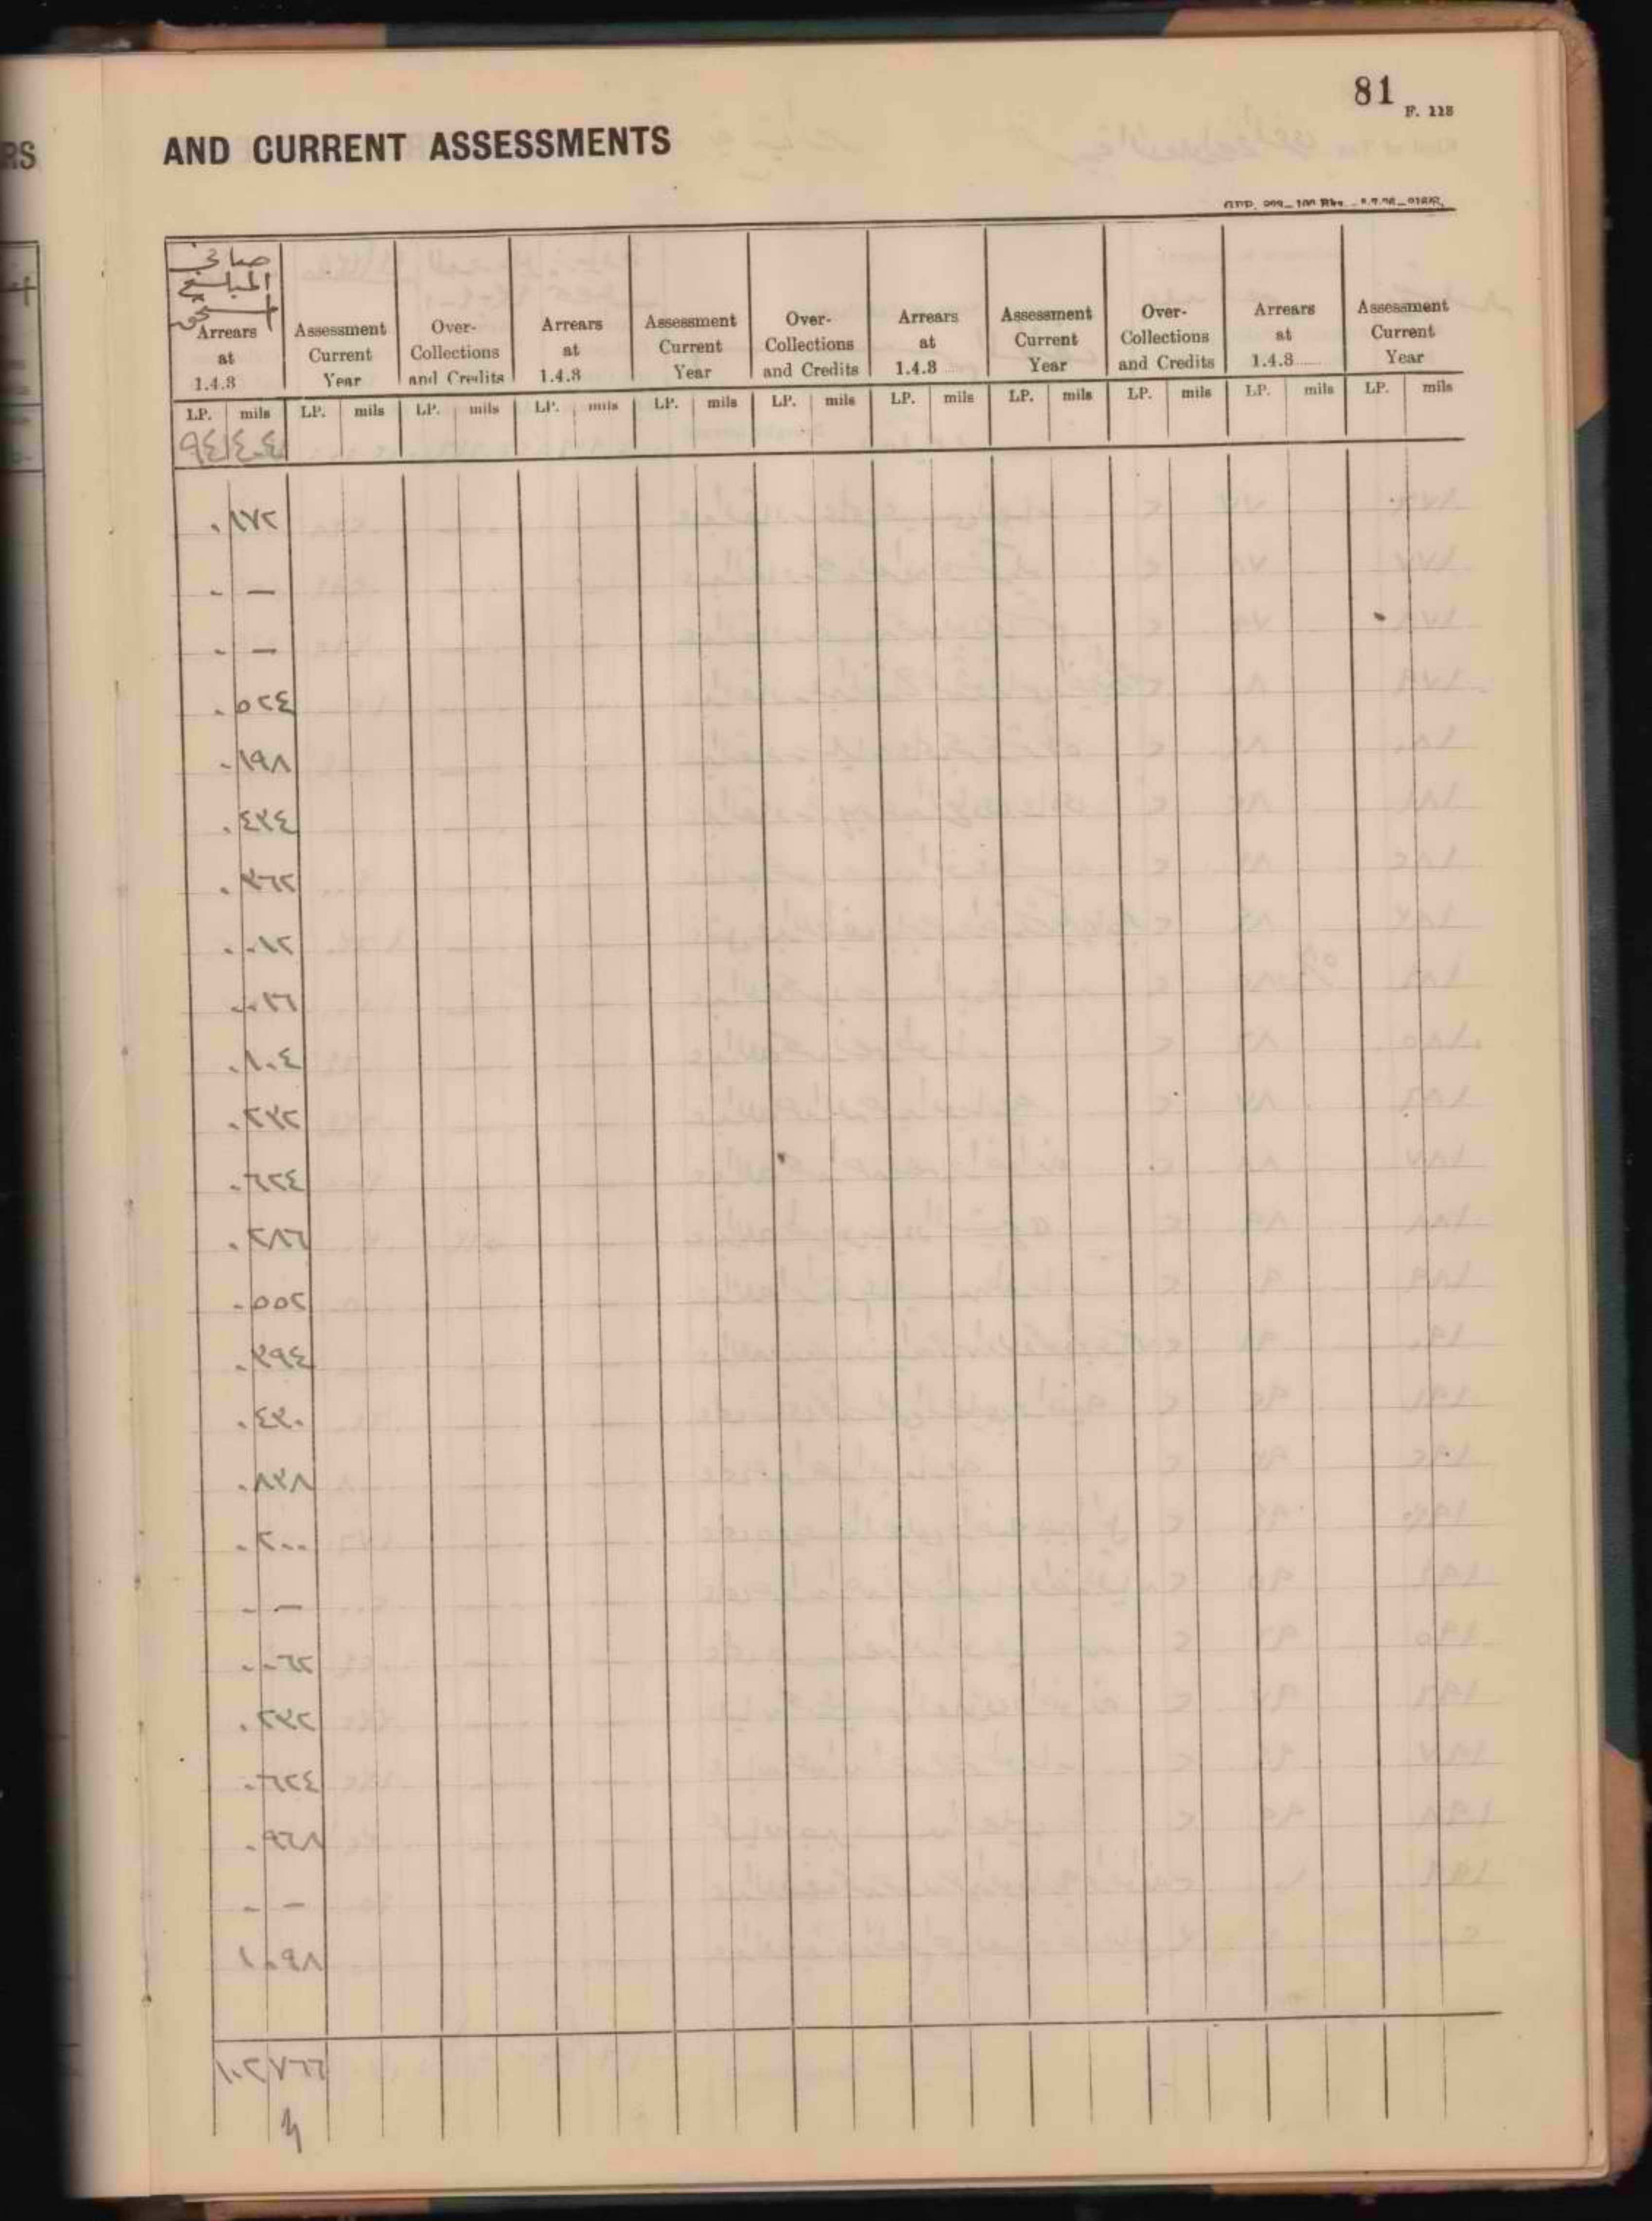 RS
81
F. 118
AND CURRENT ASSESSMENTS
صافي
المبلغ
المستحق
Arrears at 1.4.3 | Assessment Current Year | Over-Collections and Credits | Arrears at 1.4.3 | Assessment Current Year | Over-Collections and Credits | Arrears at 1.4.3...... | Assessment Current Year | Over-Collections and Credits | Arrears at 1.4.3...... | Assessment Current Year
LP. mils LP. mils LP. mils LP. mils LP. mils LP. mils LP. mils LP. mils LP. mils LP. mils LP. mils
٩٤ ٤٠٤
٠ ١٧٢
٠ —
٠ —
٠ ٥٢٤
٠ ١٩٨
٠ ٤٣٤
٠ ٣٦٢
٠ ٠١٢
٠ ٠١٦
٠ ١٠٤
٠ ٢٣٢
٠ ٦٢٤
٠ ٢٨٦
٠ ٥٥٢
٠ ٣٩٤
٠ ٤٣٠
٠ ٨٣٨
٠ ٢٠٠
٠ —
٠ ٠٦٢
٠ ٢٣٢
٠ ٦٢٤
٠ ٩٦٨
٠ —
١ ٠٩٨
١٠٢ ٧٦٦